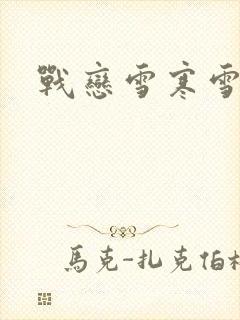 戰戀雪寒雪
馬克-扎克伯格